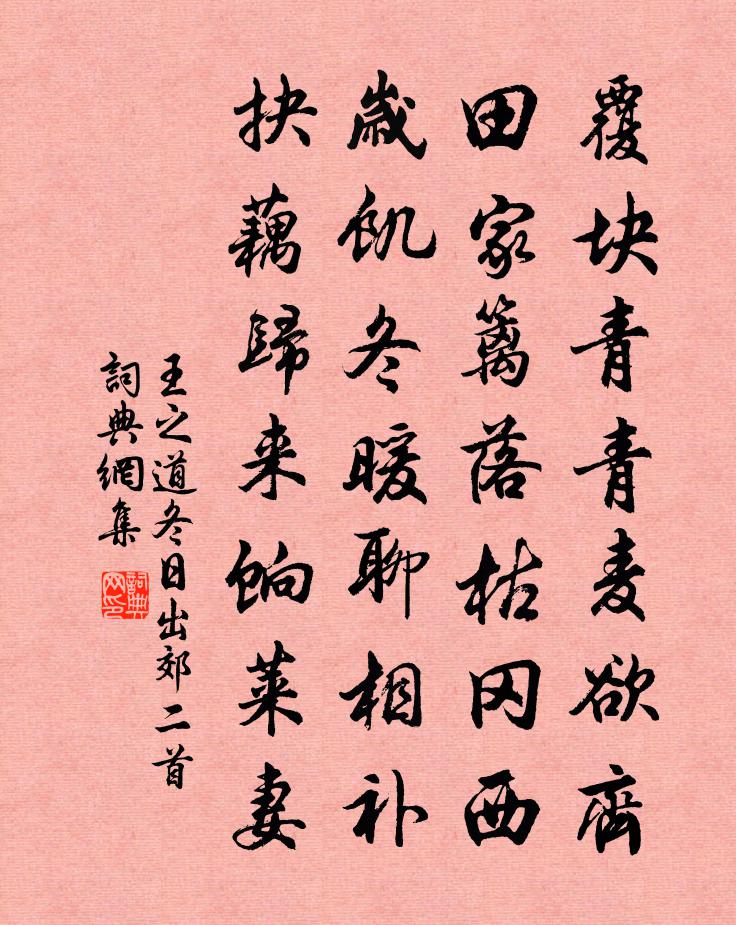 覆块青青麦欲齊
田家篱落枯冈西
歲飢冬暖聊相补
抉藕歸来餉莱妻
王之道冬日出郊二首
詞典網集
詞典网印